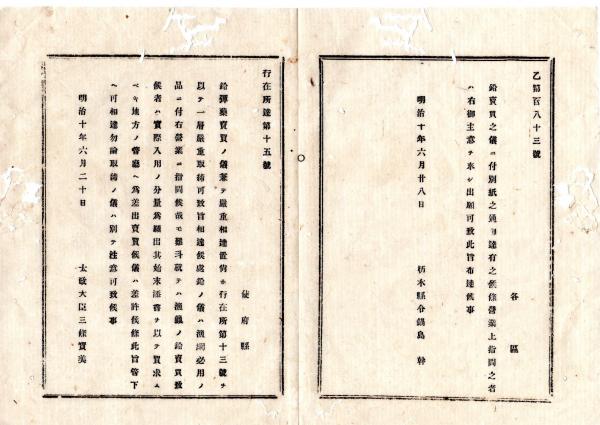 乙第百八十三號
各區
鉛賣買之儀ニ付別紙之通リ達有之候條營業上指閊之者
ハ右御主意ヲ承ケ出願可致此旨布達候事
明治十年六月廿八日
栃木縣令鍋島幹
行在所達第十五號
使府縣
鉛彈藥賣買ノ儀兼テ嚴重相達置尚亦行在所第十三號ヲ
以テ一層嚴重取締可致旨相達候處鉛ノ儀ハ漁網必用ノ
品ニ付右營業ニ指閊候哉モ難計就テハ漁鐵ノ鉛賣買致
候者ハ實際入用ノ分量爲願出其始末添書ヲ以テ買求ム
ベキ地方ノ管廳ヘ爲差出賣買候儀ハ差許候條此旨管下
ヘ可相達勿論取締ノ儀ハ別テ注意可致候事
明治十年六月二十日
太政大臣三條實美